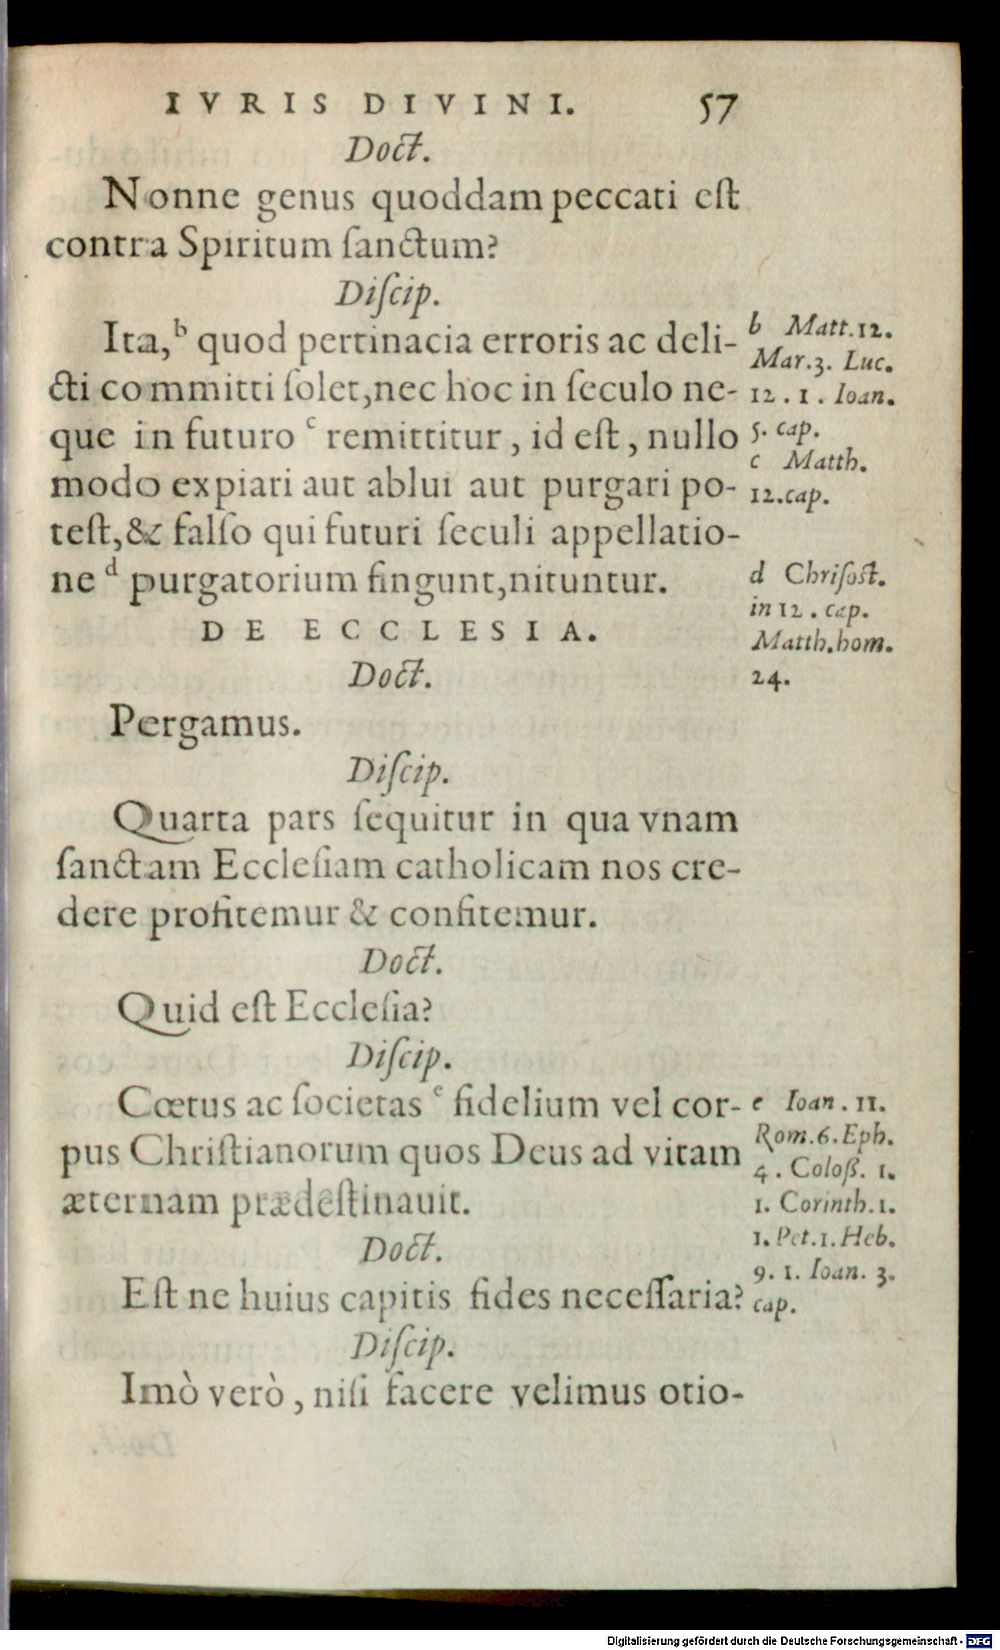 IVRIS DIVINI. 57
Doct.
Nonne genus quoddam peccati est
contra Spiritum ſanctum?
Diſcip.
Ita,ᵇ quod pertinacia erroris ac deli-
cti committi ſolet,nec hoc in ſeculo ne-
que in futuro ᶜ remittitur, id eſt, nullo
modo expiari aut ablui aut purgari po-
teſt,& falſo qui futuri ſeculi appellatio-
ne ᵈ purgatorium fingunt,nituntur.
b Matt.12.
Mar.3. Luc.
12. 1. Ioan.
5. cap.
c Matth.
12.cap.
d Chriſoſt.
in 12. cap.
Matth.hom.
24.
DE ECCLESIA.
Doct.
Pergamus.
Diſcip.
Quarta pars ſequitur in qua vnam
ſanctam Eccleſiam catholicam nos cre-
dere profitemur & confitemur.
Doct.
Quid eſt Eccleſia?
Diſcip.
Cœtus ac ſocietas ᵉ fidelium vel cor-
pus Chriſtianorum quos Deus ad vitam
æternam prædeſtinauit.
e Ioan. 11.
Rom.6.Eph.
4. Coloß. 1.
1. Corinth.1.
1. Pet.1.Heb.
9. 1. Ioan. 3.
cap.
Doct.
Eſt ne huius capitis fides neceſſaria?
Diſcip.
Imò verò, niſi facere velimus otio-
Digitalisierung gefördert durch die Deutsche Forschungsgemeinschaft - DFG